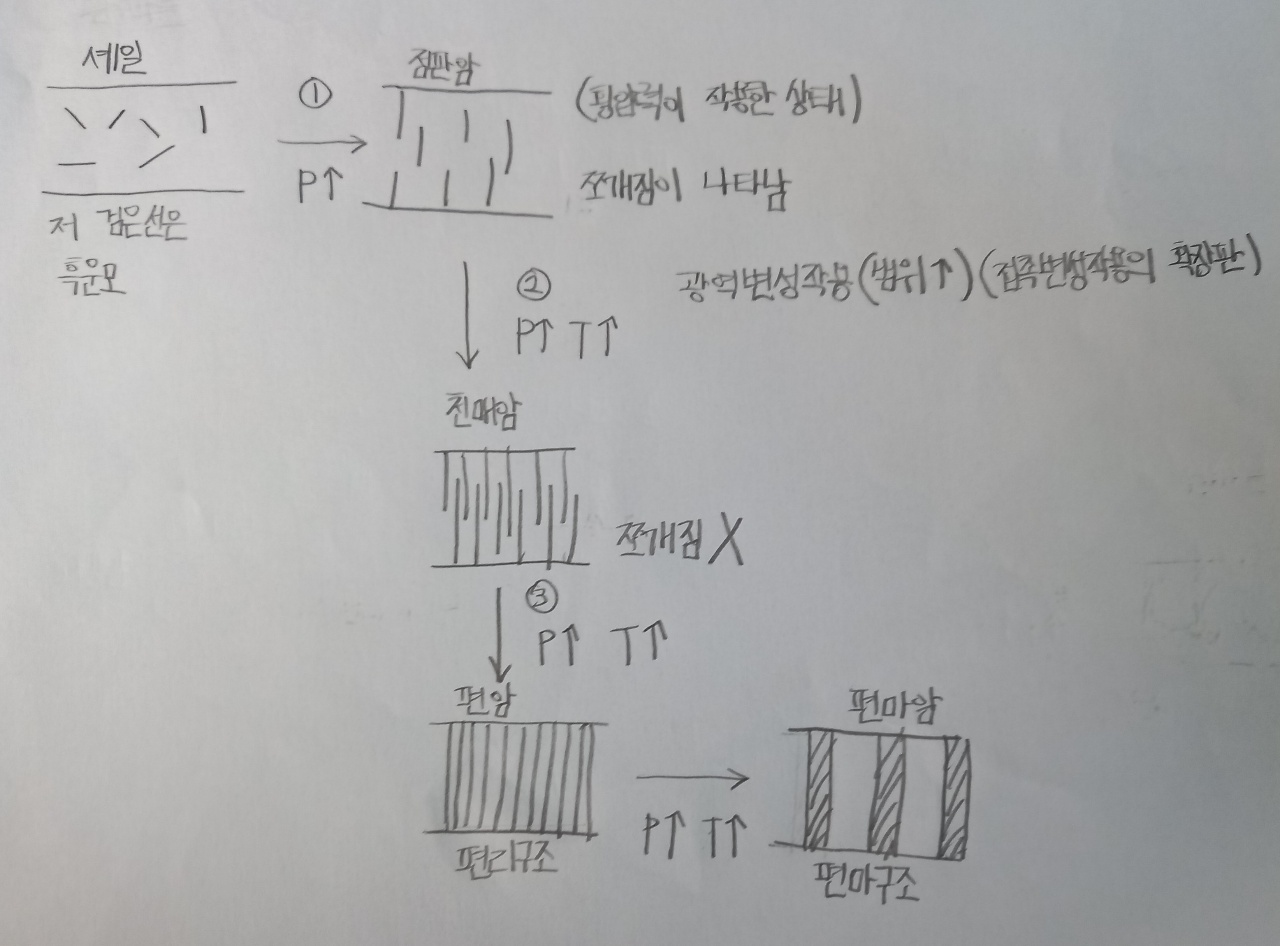 셰일
점판암
①
P↑
(횡압력이 작용한 상태)
쪼개짐이 나타남
저 검은선은
흑운모
②
P↑ T↑
광역변성작용(범위↑)(접촉변성작용의 확장판)
천매암
쪼개짐 X
③
P↑ T↑
편암
편리구조
P↑ T↑
편마암
편마구조